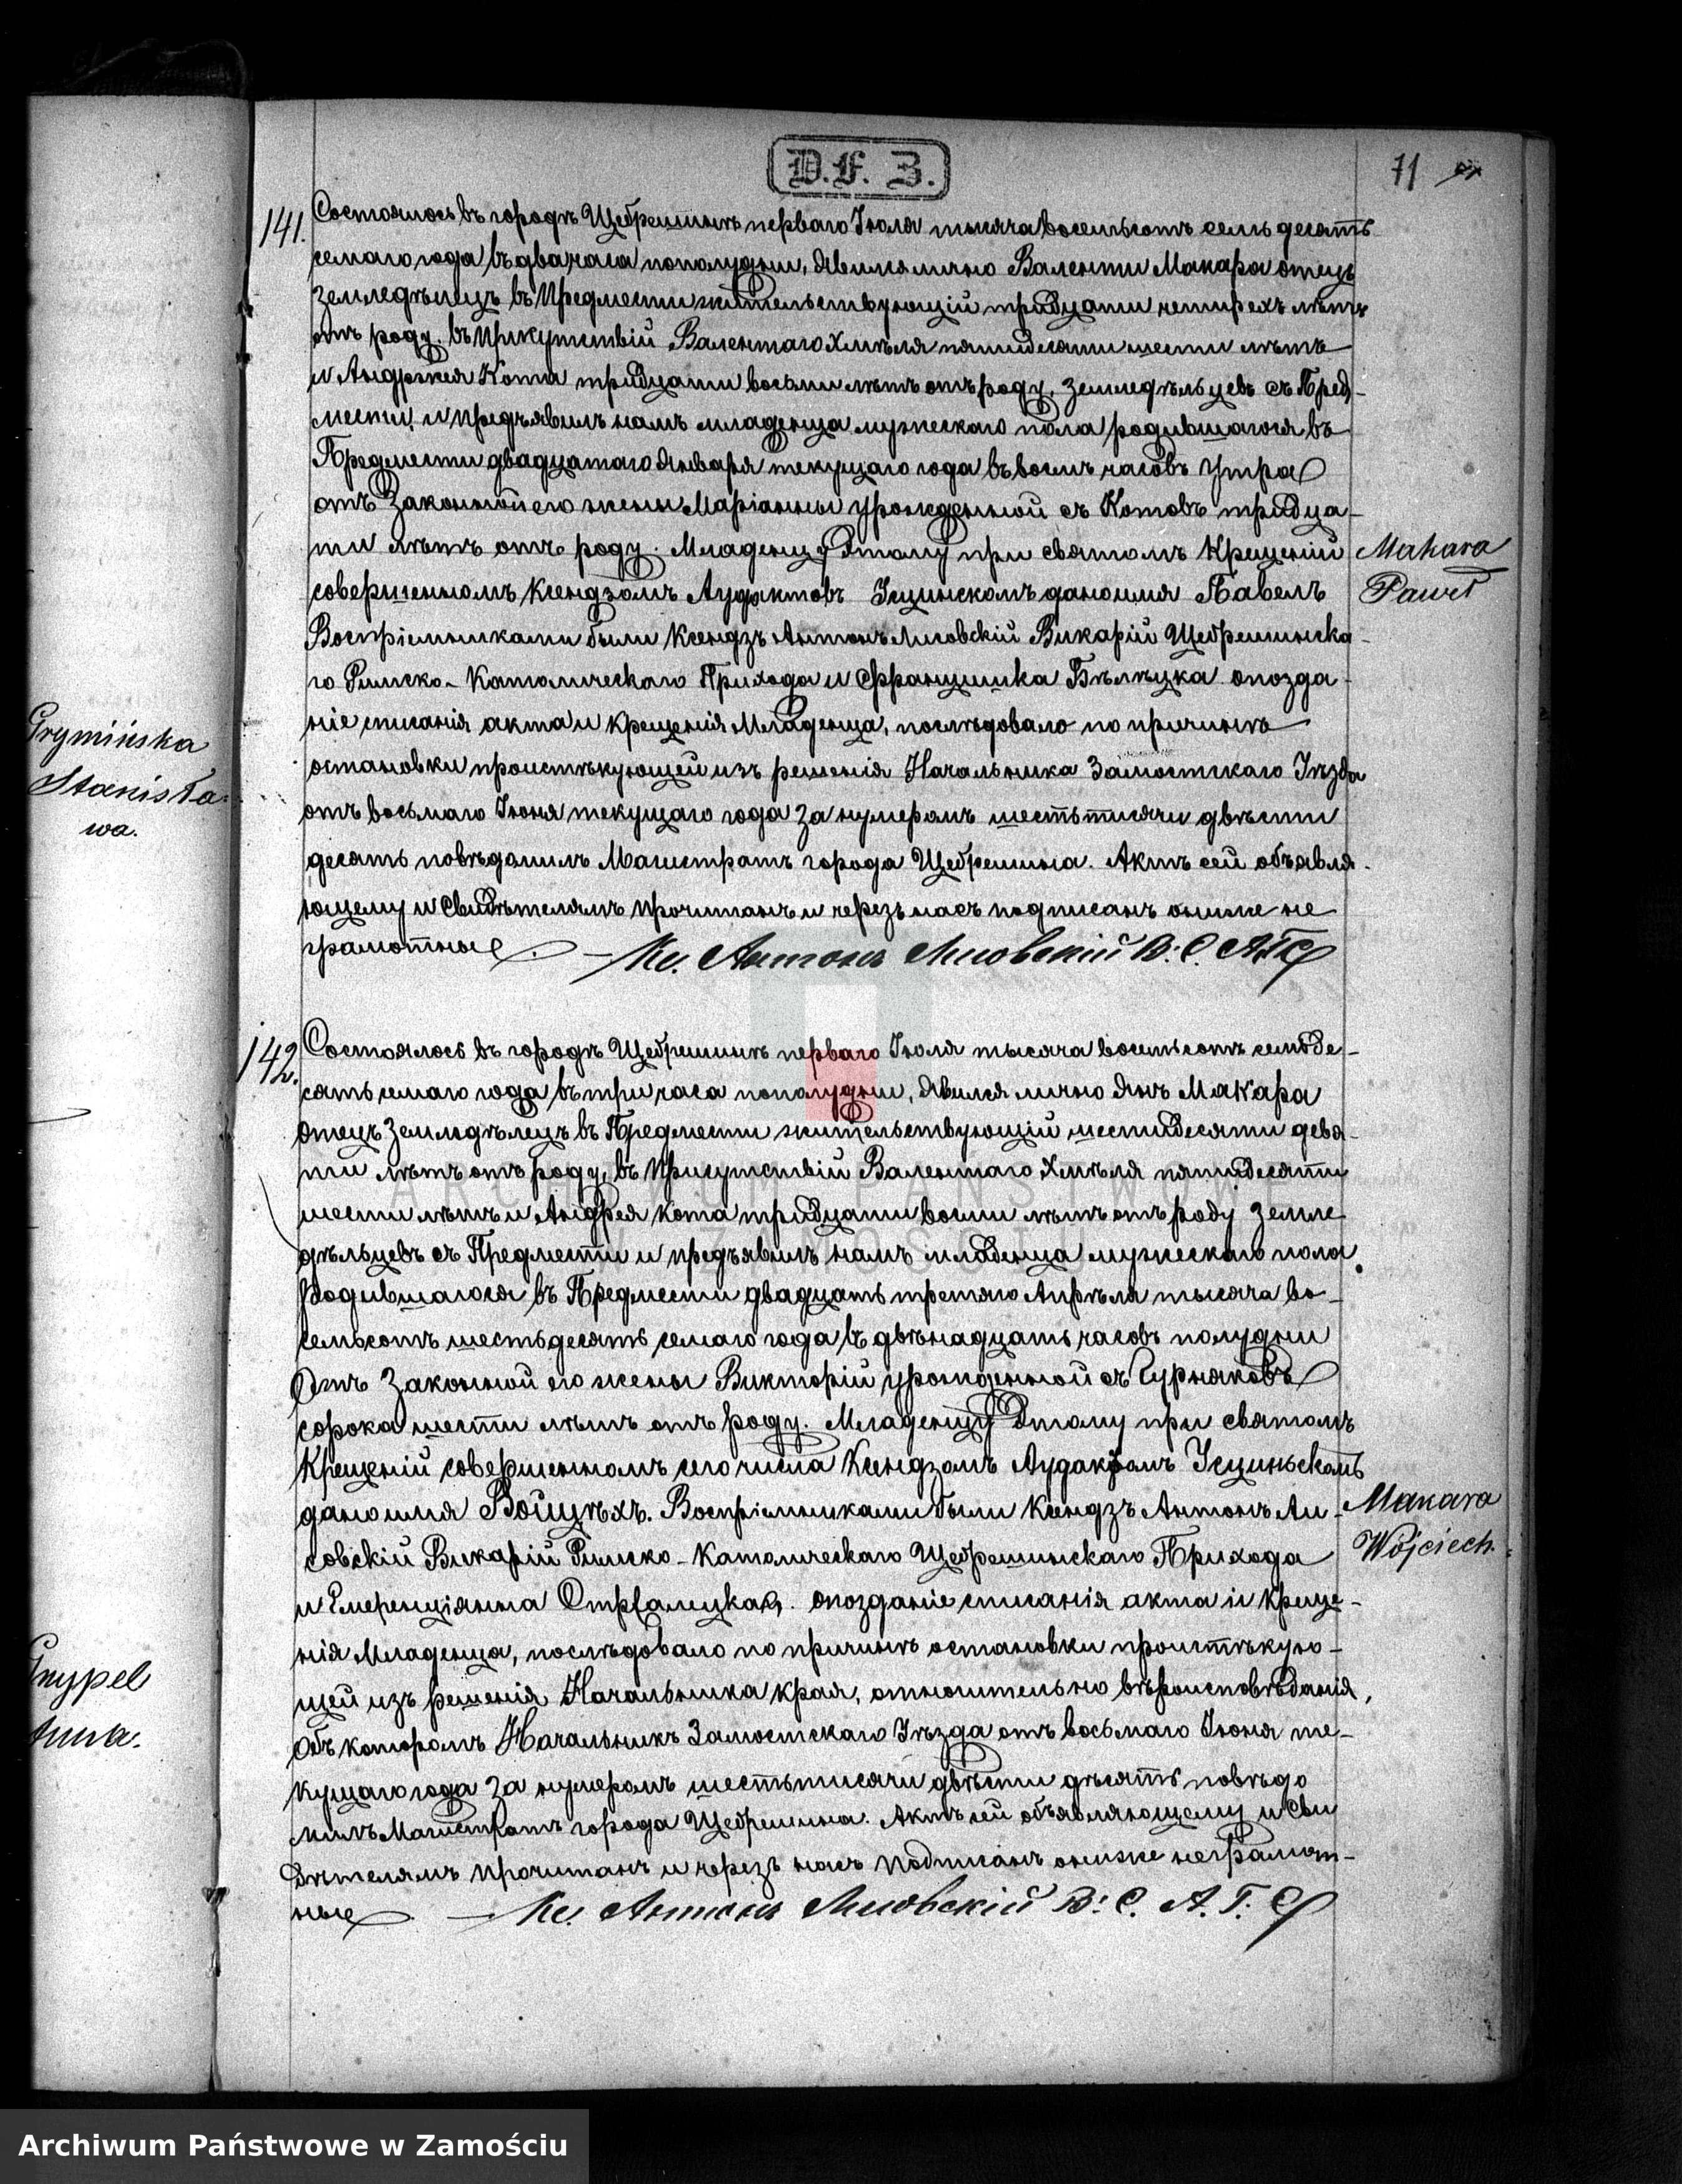 D. F. Z.
71
141.
Состоялось въ городѣ Щебрешинѣ перваго Іюля тысяча восемьсотъ семьдесятъ
семаго года въ два часа пополудни, Явился лично Валенти Макара отецъ
Земледѣлецъ въ Предмести жительствующій тридцати четырехъ лѣтъ
отъ роду. въ Присутствій Валентаго Хмѣля пятидесяти шести лѣтъ
и Андржея Кота тридцати восьми лѣтъ отъ роду, Земледѣльцевъ съ Пред-
мести, и предъявилъ намъ младенца мужескаго пола родившагося въ
Предмести двадцатаго Января текущаго года въ восемь часовъ Утра
отъ Законной его жены Маріанны урожденной съ Котовъ тридца-
ти лѣтъ отъ роду. Младенцу Этому при святомъ Крещеній
совершенномъ Ксендзомъ Аудактовъ Ісцинскомъ дано имя Павелъ
Воспріемниками были Ксендзъ Антонъ Лисовскій Викарій Щебрешинска-
го Римско-Католическаго Прихода и Францишка Бѣлѣцка опозда-
ніе списанія акта и крещенія Младенца, послѣдовало по причинѣ
остановки проистѣкующей изъ решенія Начальника Замостскаго Уѣзда
отъ восьмаго Іюня текущаго года за нумеромъ шесть тисячи двѣсти
десять повѣдомилъ Магистратъ города Щебрешина. Актъ сей объявля-
ющему и Свидѣтелямъ прочитанъ и черезъ насъ подписанъ ониже не
грамотные. — Кс. Антонъ Лисовскій В. С. А. Г. С
Makara
Paweł
142.
Состоялось въ городѣ Щебрешинѣ перваго Іюля тысяча восемьсотъ семьде-
сятъ семаго года въ три часа пополудни, Явился лично Янъ Макара
Отецъ Земледѣлецъ въ Предмести жительствующій шестидесяти девя-
ти лѣтъ отъ роду, въ Присутствій Валентаго Хмѣля пятидесяти
шести лѣтъ и Андрея Кота тридцати восми лѣтъ отъ роду Земле
дѣльцевъ съ Предмести и предъявилъ намъ младенца мужескаго пола
Родившагося въ Предмести двадцать третяго Апрѣля тысяча во-
семьсотъ шестьдесятъ семаго года въ двѣнадцать часовъ полудни
Отъ Законной его жены Викторій урожденной съ Гурняковъ
сорока шести лѣтъ отъ роду. Младенцу Этому при святомъ
Крещеній совершенномъ сего числа Ксендзомъ Аудактомъ Ісциньскомъ
дано имя Войцѣхъ. Воспріемниками были Ксендзъ Антонъ Ли-
совскій Викарій Римско-Католическаго Щебрешинскаго Прихода
и Емеренціянна опозданіе списанія акта и креще-
нія Младенца, послѣдовало по причинѣ остановки проистѣкую-
щей изъ решенія Начальника края, относительно вѣроисповѣданія,
Объ которомъ Начальникъ Замостскаго Уѣзда отъ восьмаго Іюня те-
кущаго года за нумеромъ шесть тисячи двѣсти дѣсять повѣдо
милъ Магистратъ города Щебрешина. Актъ сей объявляющему и Сви
дѣтелямъ прочитанъ и черезъ насъ подписанъ ониже неграмот-
ные. — Кс. Антонъ Лисовскій В. С. А. Г. С
Makara
Wójciech.
Grymińska
Stanisła
wa.
Gnypel
Anna.
ARCHIWUM PAŃSTWOWE
W ZAMOŚCIU
Archiwum Państwowe w Zamościu